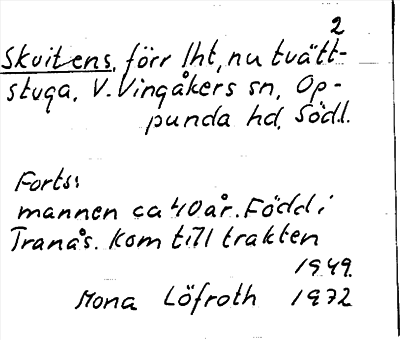 2
Skvitens, förr lht, nu tvätt-
stuga, V. Vingåkers sn, Op-
punda hd, Södl.
Forts:
mannen ca 40 år. Född i
Tranås. Kom till trakten
1949.
Mona Löfroth 1972